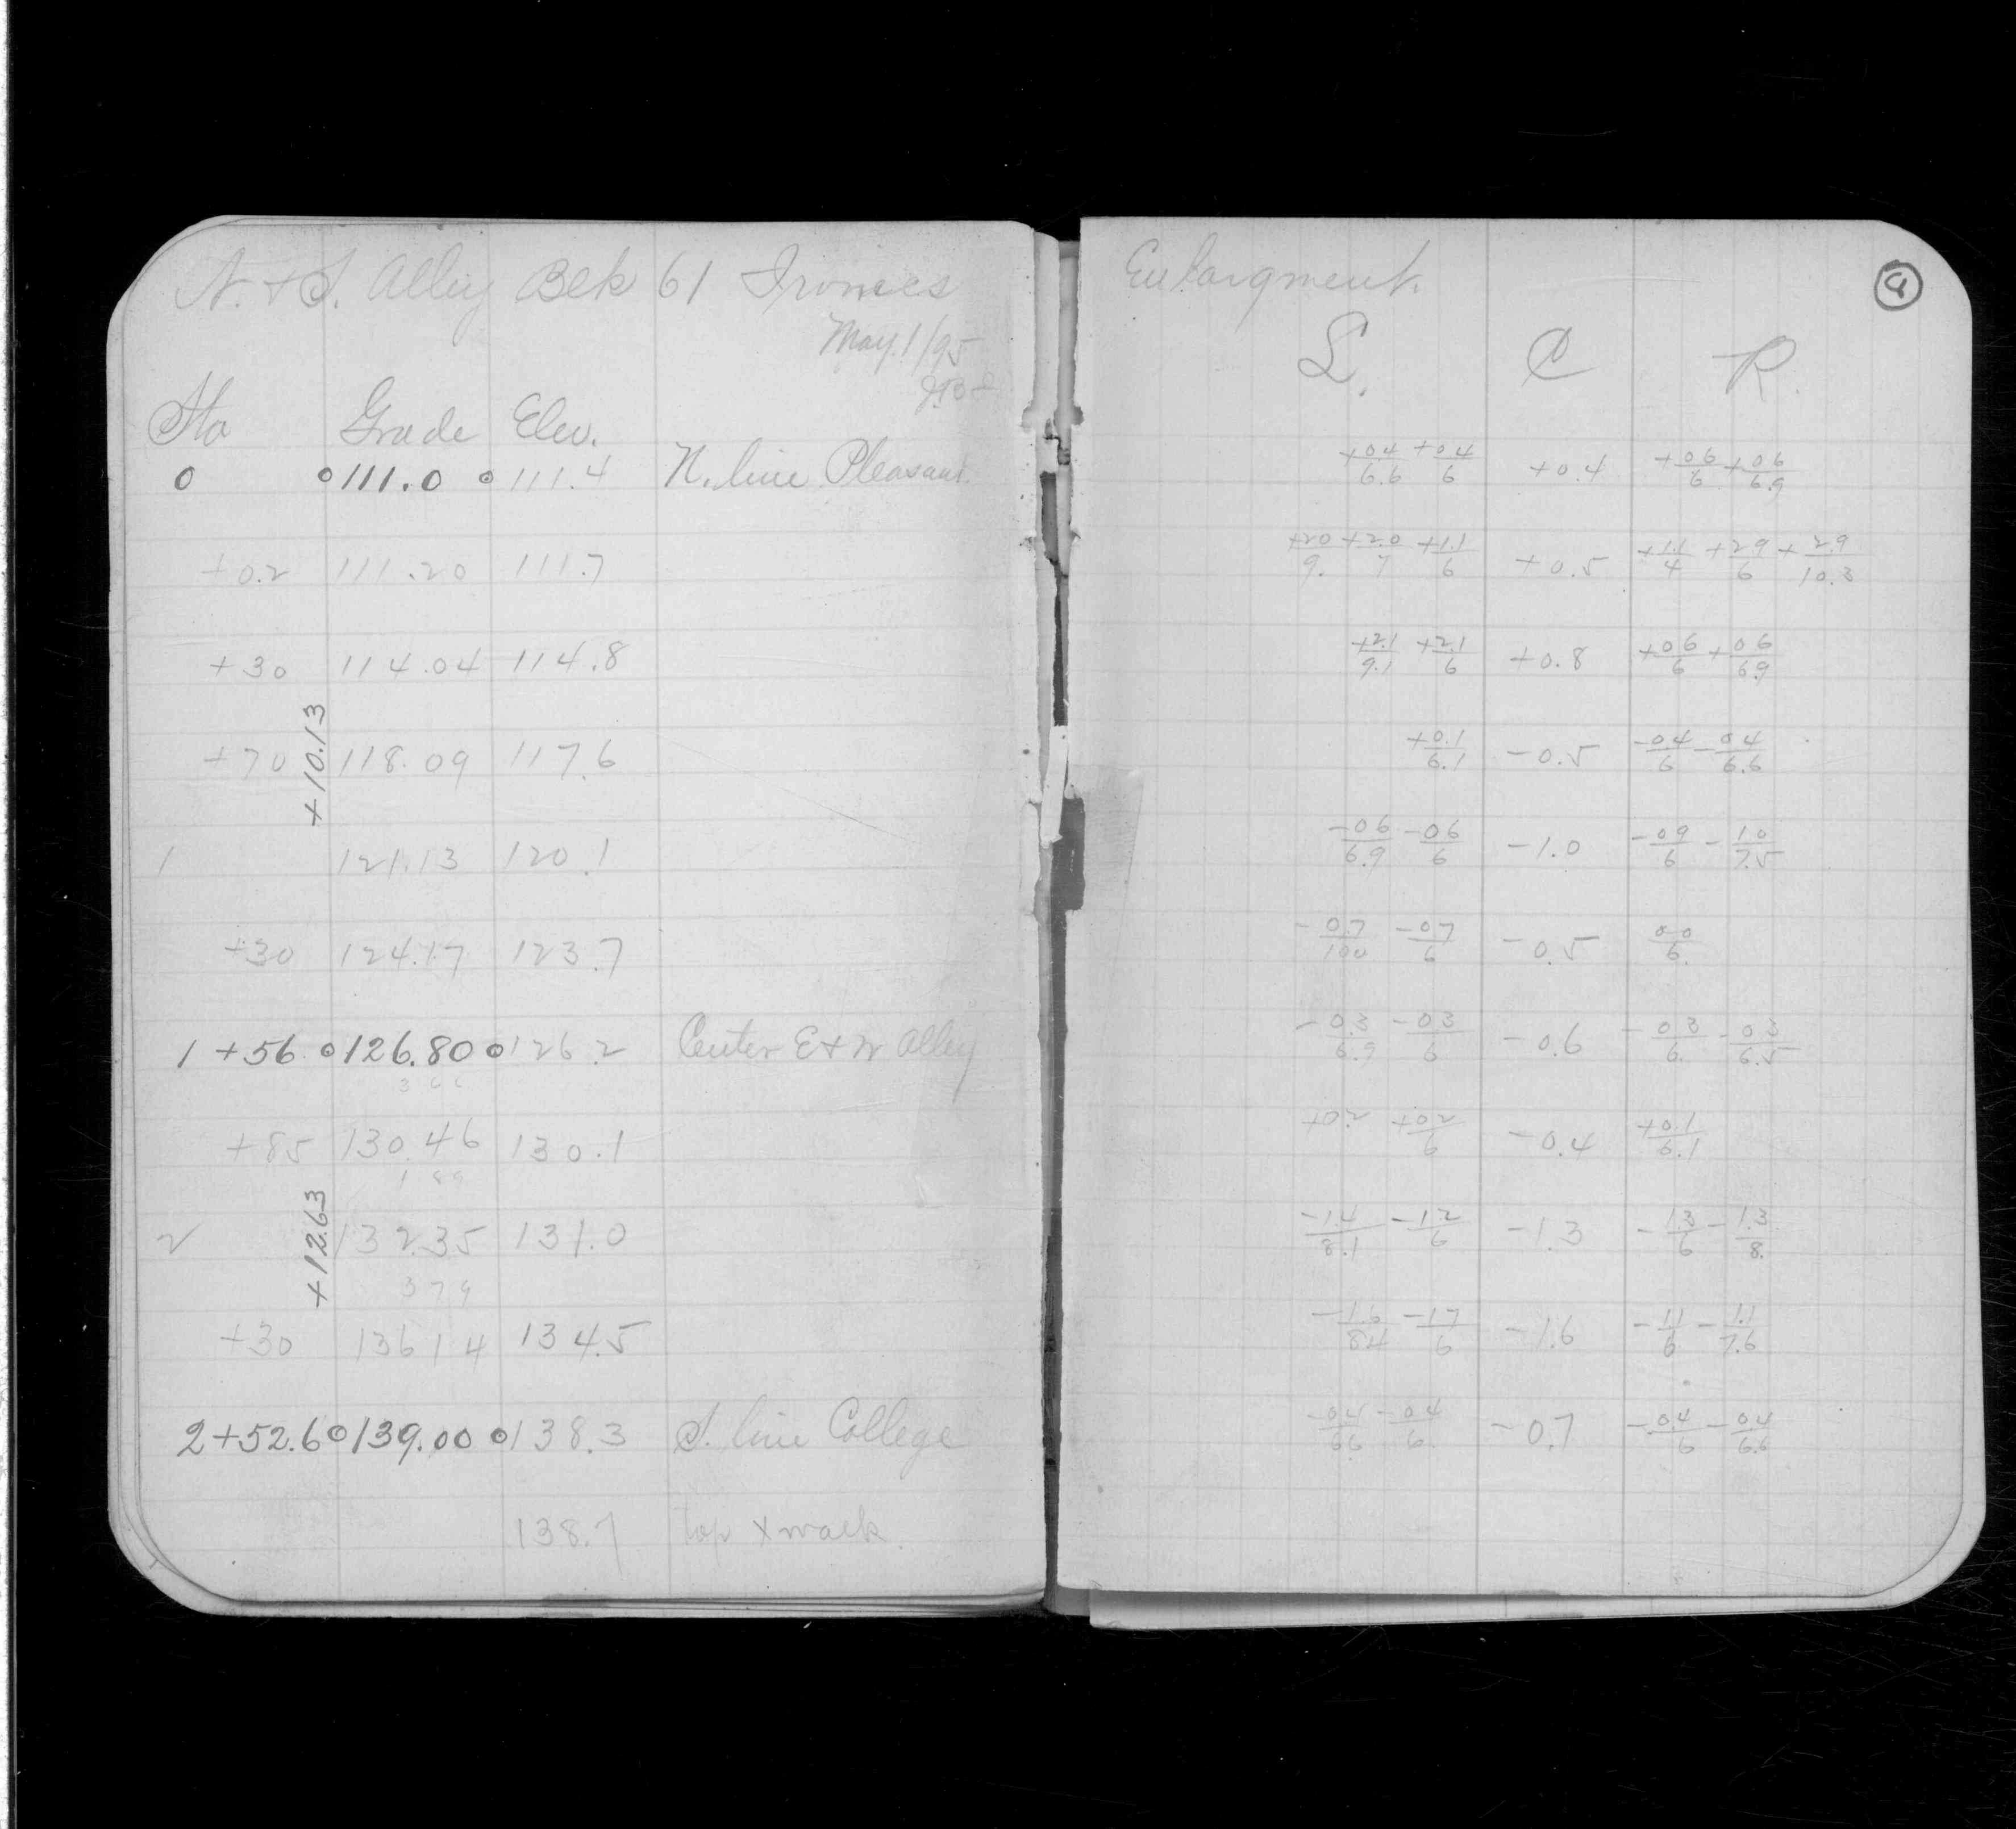 N. + S. Alley Blk 61 Irvines
May. 1/95
Sta Grade Elev.
0 111.0 111.4 N. line Pleasant
+0.2 111.20 111.7
+30 114.04 114.8
+10.13
+70 118.09 117.6
1 121.13 120.1
+30 124.17 123.7
1 +56 126.80 126.2 Center E + W Alley
+85 130.46 130.1
+12.63
2 132.35 131.0
379
+30 136 14 134.5
2+52.6 139.00 138.3 S. line College
138.7 top x walk
Enlargment.
L. C R.
+04/6.6 +04/6 +0.4 +06/6 +06/6.9
+20/9. +2.0/7 +1.1/6 +0.5 +1.1/4 +29/6 +2.9/10.3
+2.1/9.1 +2.1/6 +0.8 +06/6 +06/6.9
+0.1/6.1 -0.5 -04/6 -04/6.6
-06/6.9 -06/6 -1.0 -09/6 -10/7.5
-0.7/100 -07/6 -0.5 00/6.
-0.3/6.9 -03/6 -0.6 -03/6. -03/6.5
+0.2 +02/6 -0.4 +0.1/6.1
-1.4/8.1 -12/6 -1.3 -13/6 -1.3/8.
-1.6/84 -17/6 -1.6 -11/6 -1.1/7.6
-04/66 -04/6. -0.7 -04/6 -04/6.6